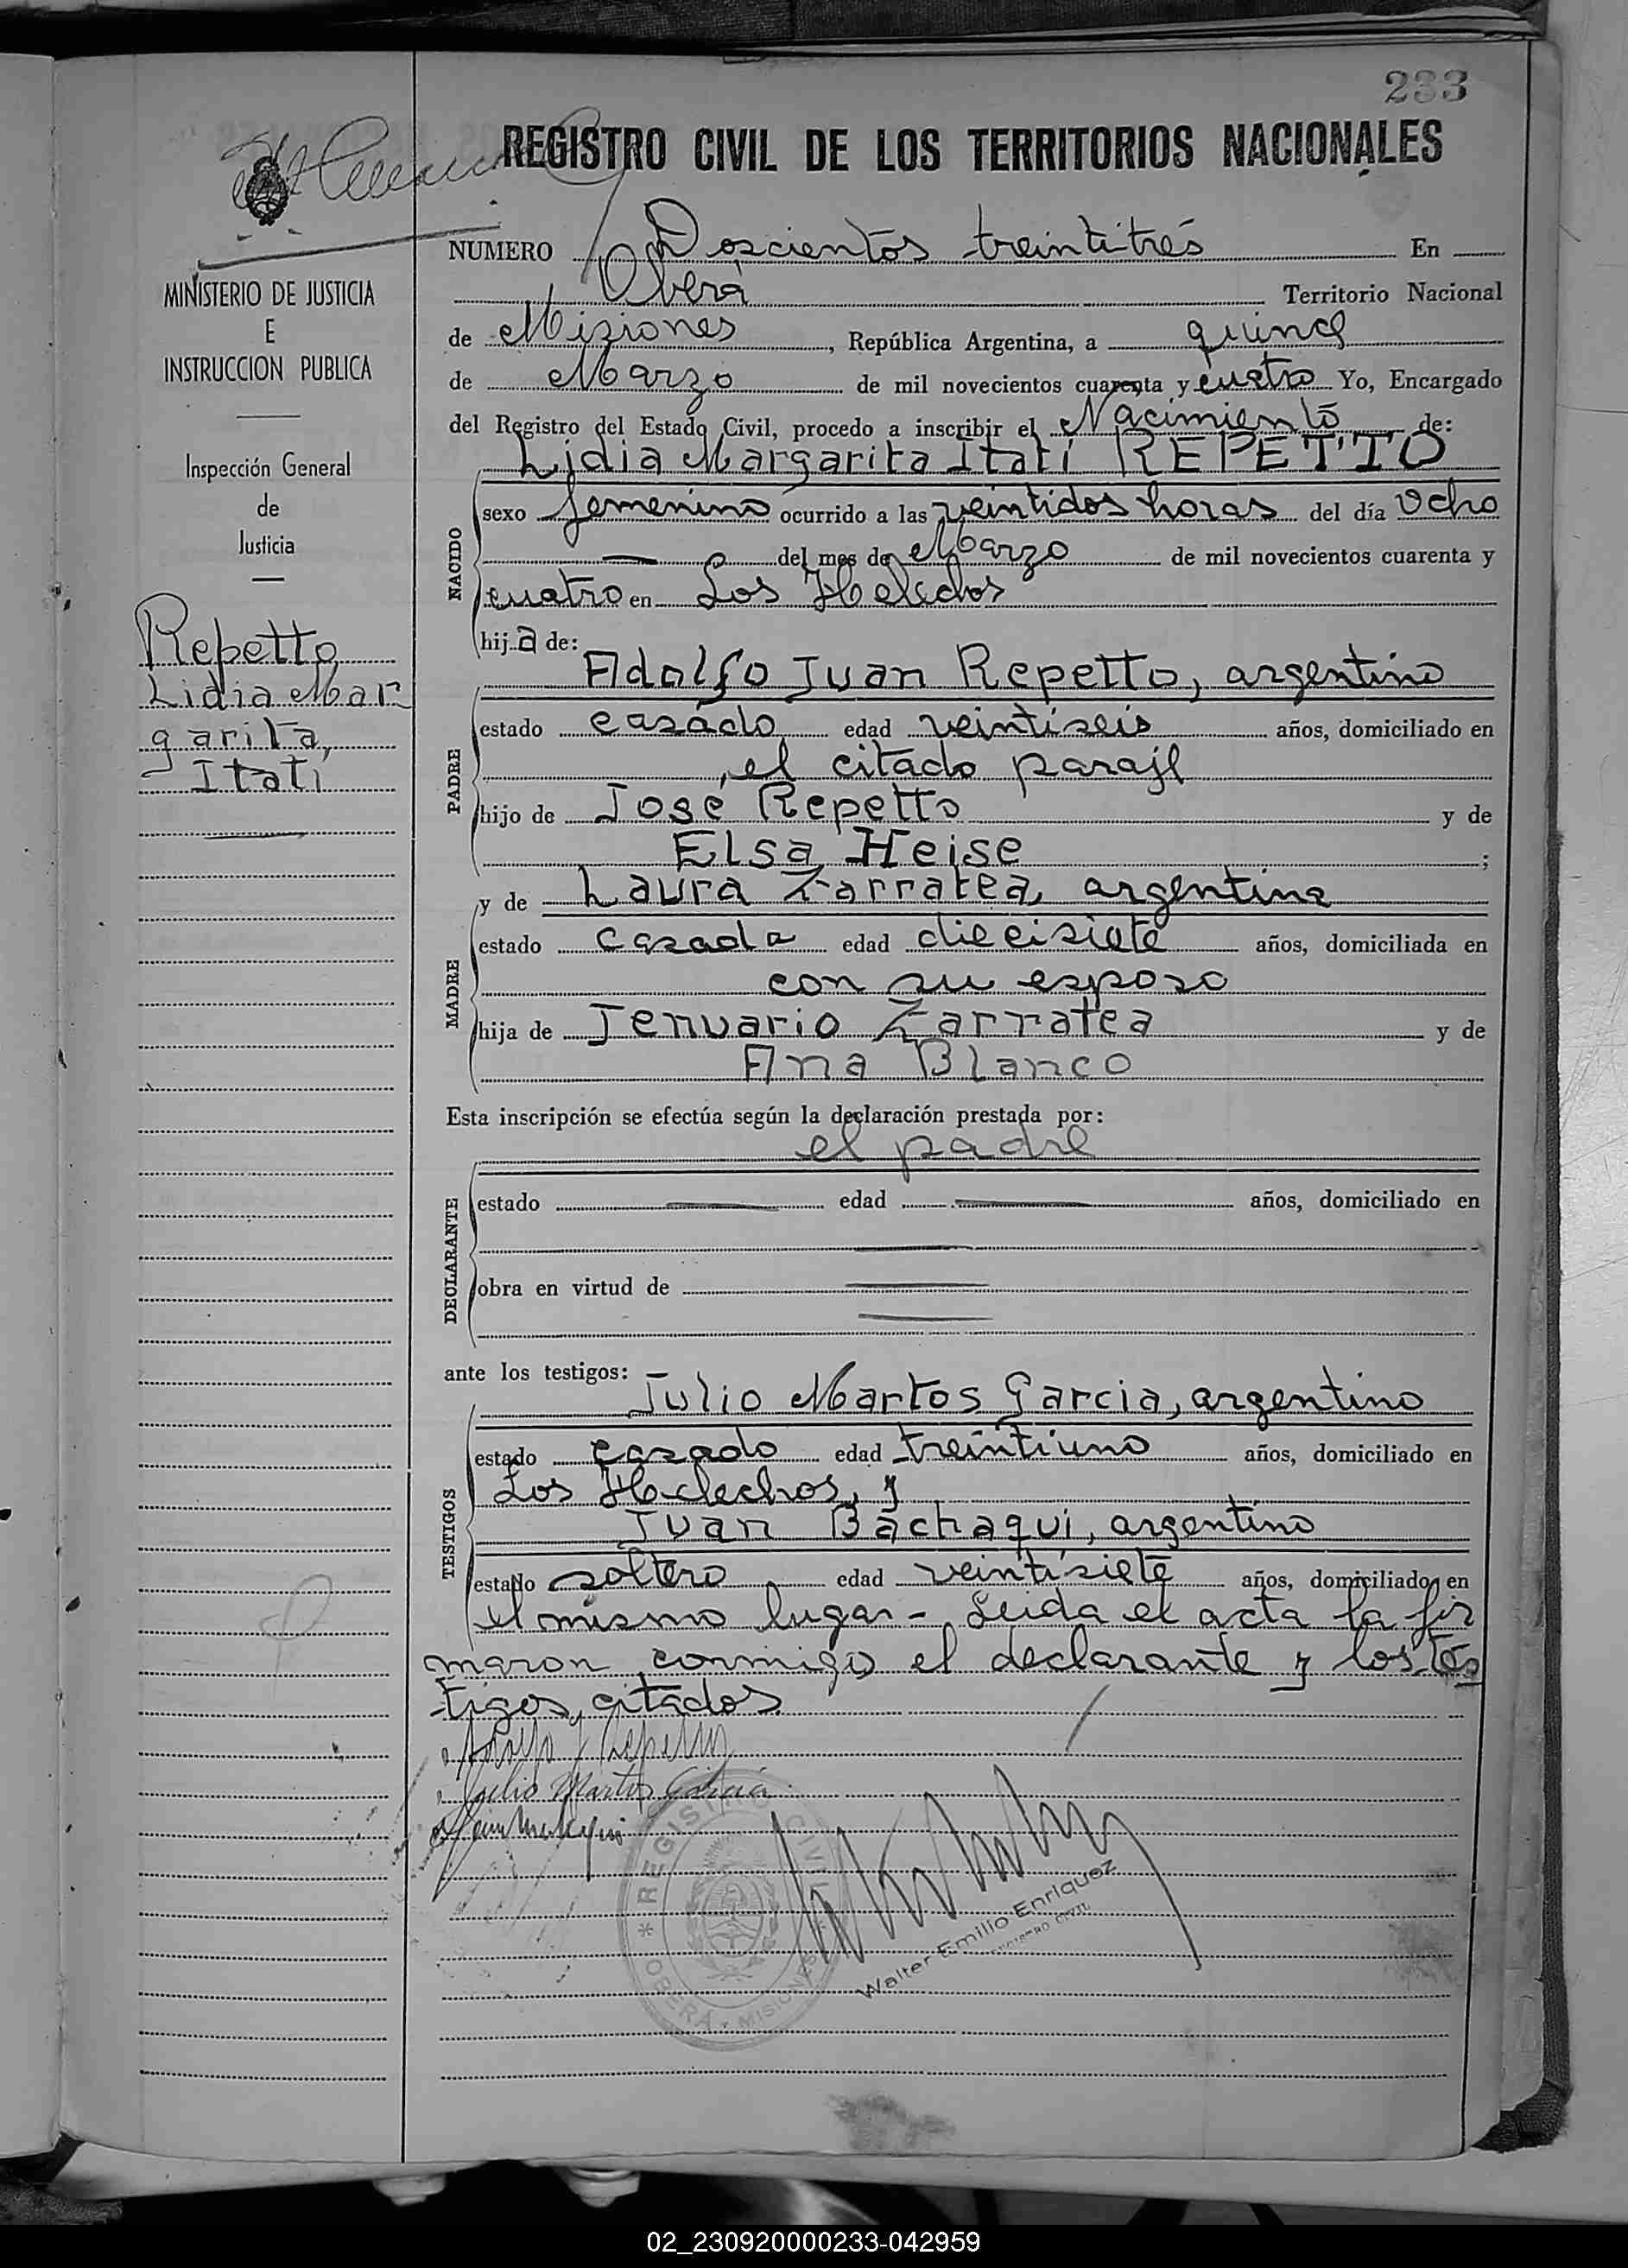 233
REGISTRO CIVIL DE LOS TERRITORIOS NACIONALES
NUMERO Doscientos treintitrés En
Oberá Territorio Nacional
de Misiones, República Argentina, a quince
de Marzo de mil novecientos cuarenta y cuatro Yo, Encargado
del Registro del Estado Civil, procedo a inscribir el Nacimiento de:
MINISTERIO DE JUSTICIA
E
INSTRUCCION PUBLICA
Inspección General
de
Justicia
Repetto
Lidia Mar
garita,
Itatí
NACIDO
Lidia Margarita Itatí REPETTO
sexo femenino ocurrido a las veintidos horas del día ocho
del mes de Marzo de mil novecientos cuarenta y
cuatro en Los Helechos
hija de:
PADRE
Adolfo Juan Repetto, argentino
estado casado edad veintiseis años, domiciliado en
el citado paraje
hijo de José Repetto y de
Elsa Heise;
MADRE
y de Laura Zarratea, argentina
estado casada edad diecisiete años, domiciliada en
con su esposo
hija de Jenuario Zarratea y de
Ana Blanco
Esta inscripción se efectúa según la declaración prestada por:
el padre
DECLARANTE
estado edad años, domiciliado en
obra en virtud de
ante los testigos:
TESTIGOS
Julio Martos Garcia, argentino
estado casado edad treintiuno años, domiciliado en
Los Helechos, y
Juan Bachaqui, argentino
estado soltero edad veintisiete años, domiciliado en
el mismo lugar - Leida el acta la fir
maron conmigo el declarante y los tes
tigos citados.
Adolfo J Repetto
Julio Martos Garcia
REGISTRO CIVIL
OBERÁ - MISIONES
Walter Emilio Enriquez
REGISTRO CIVIL
02_230920000233-042959